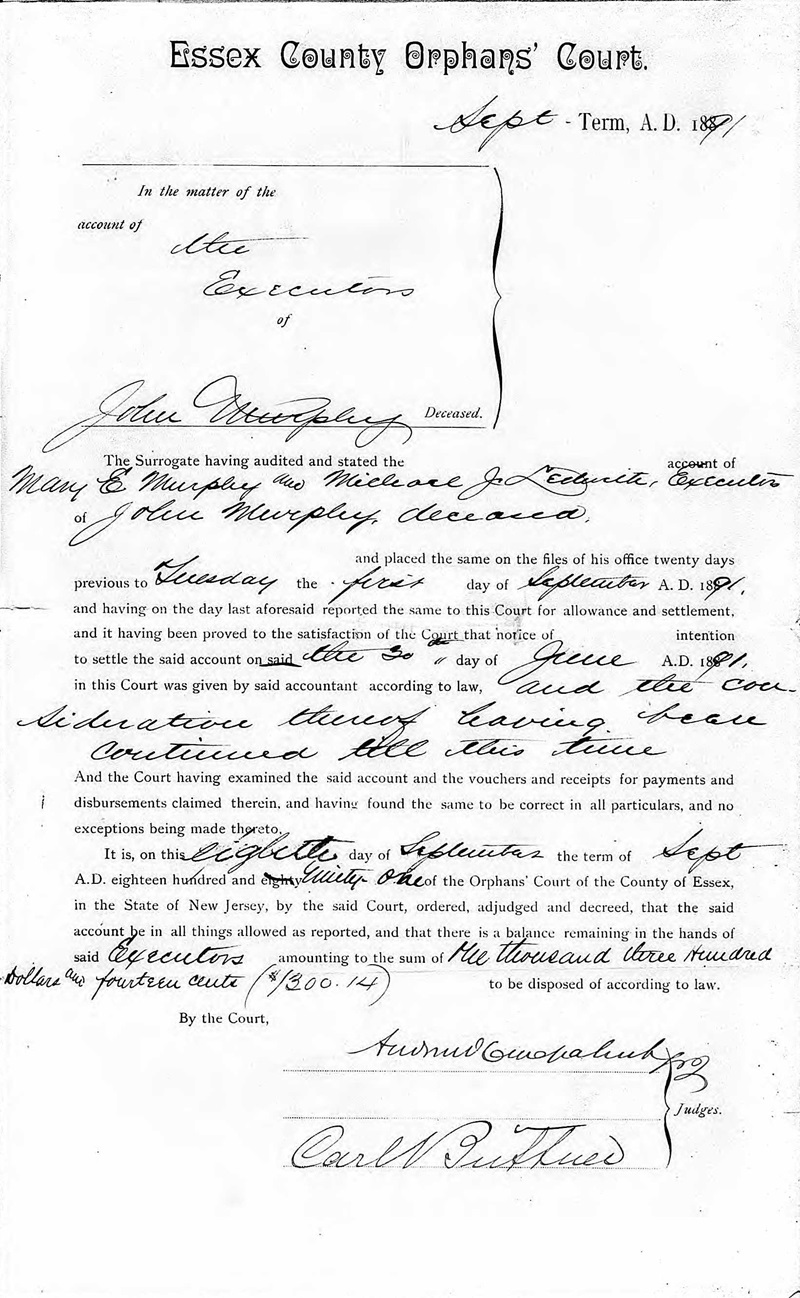 Essex County Orphans' Court.
Sept - Term, A. D. 1891
In the matter of the
account of
the
Executors
of
John Murphy Deceased.
The Surrogate having audited and stated the account of
Mary E Murphy and Michael J. Ledwith, Executors
of John Murphy, deceased.
and placed the same on the files of his office twenty days
previous to Tuesday the first day of September A. D. 1891,
and having on the day last aforesaid reported the same to this Court for allowance and settlement,
and it having been proved to the satisfaction of the Court that notice of intention
to settle the said account on said the 30th day of June A.D. 1891,
in this Court was given by said accountant according to law, and the con-
sideration thereof having been
continued till this time
And the Court having examined the said account and the vouchers and receipts for payments and
disbursements claimed therein, and having found the same to be correct in all particulars, and no
exceptions being made thereto.
It is, on this eighth day of September the term of Sept
A.D. eighteen hundred and eighty Ninety One of the Orphans' Court of the County of Essex,
in the State of New Jersey, by the said Court, ordered, adjudged and decreed, that the said
account be in all things allowed as reported, and that there is a balance remaining in the hands of
said Executors amounting to the sum of One thousand three Hundred
Dollars and fourteen cents ($1300.14) to be disposed of according to law.
By the Court,
Judges.
Carl V Buttner